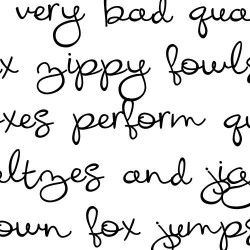 very bad qua
x zippy fowls
xes perform qu
ltzes and ja
own fox jumps